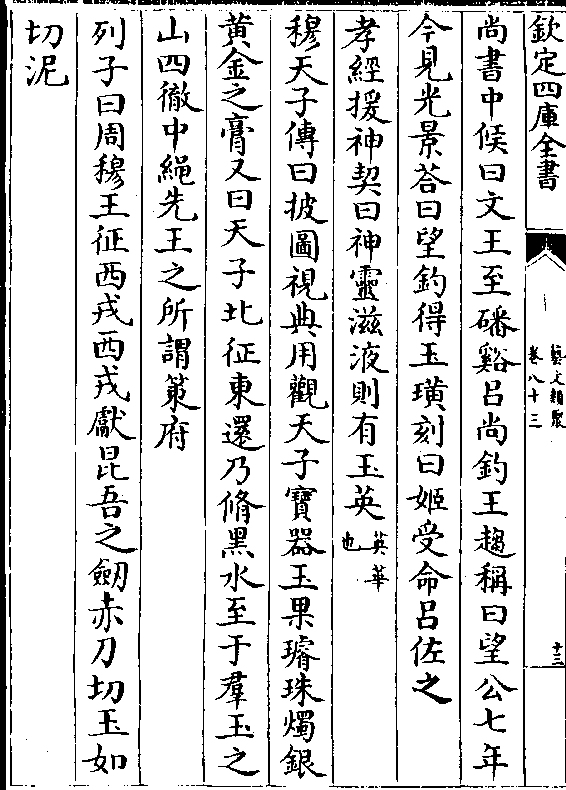 欽定四庫全書
藝文類聚
卷八十三
十三
尚書中候曰文王至磻谿呂尚釣王趨稱曰望公七年
今見光景荅曰望釣得玉璜刻曰姬受命呂佐之
孝經援神契曰神靈滋液則有玉英英華也
穆天子傳曰披圖視典用觀天子寳器玉果璿珠燭銀
黄金之膏又曰天子北征東還乃脩黒水至于羣玉之
山四徹中繩先王之所謂策府
列子曰周穆王征西戎西戎獻昆吾之劒赤刀切玉如
切泥